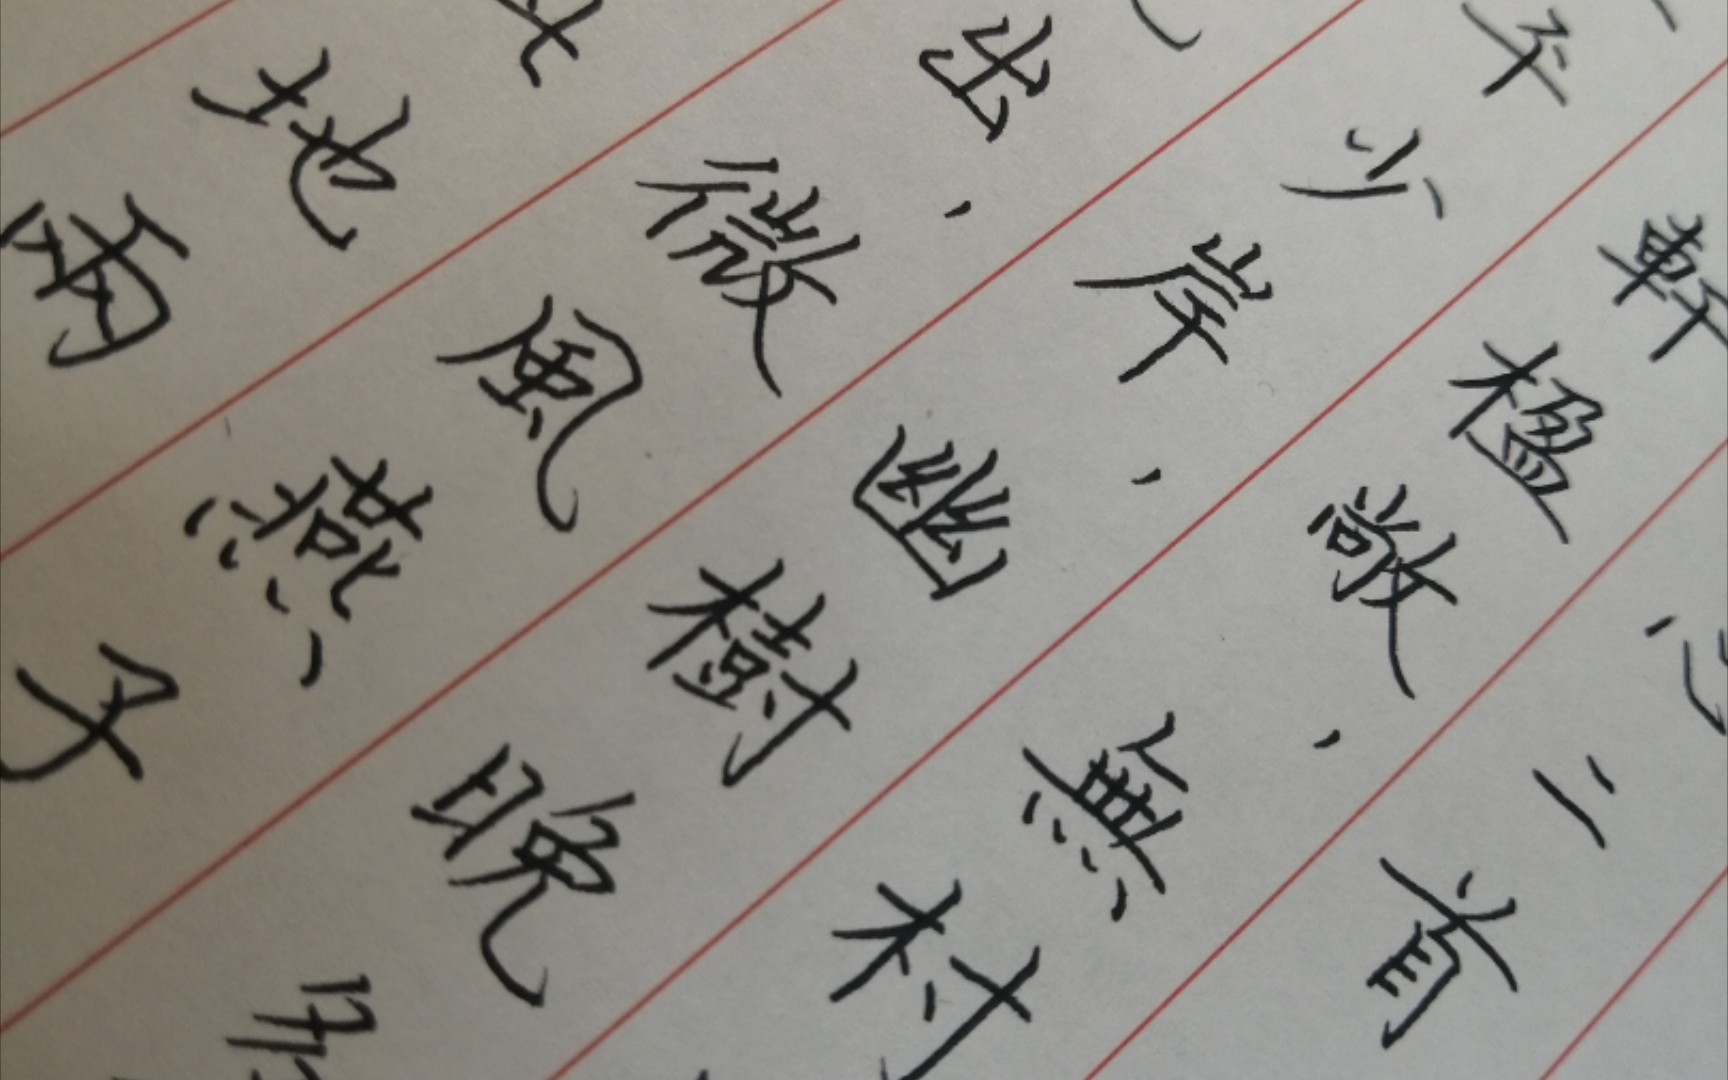 二首
軒楹敞，無村
平少岸，幽樹晚
出，微風燕子
地兩